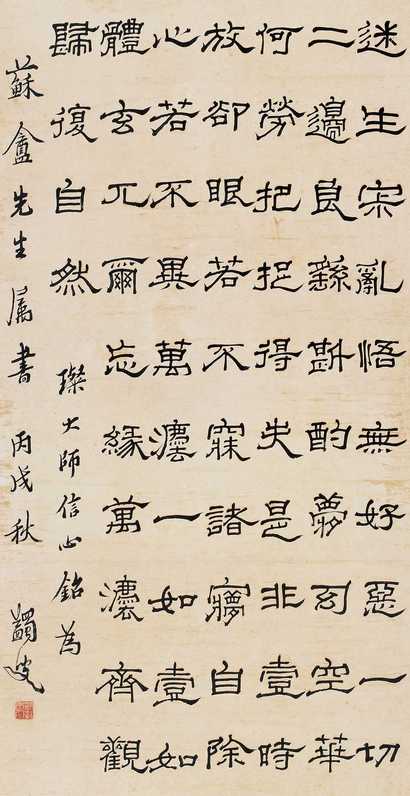 迷生寂亂悟無好惡一切
二邊良繇斟酌夢幻空華
何勞把捉得失是非壹時
放卻眼若不寐諸㝱自除
心若不異萬灋一如壹如
體玄兀爾忘緣萬灋齊觀
歸復自然
璨大師信心銘為
蘇盦先生属書 丙戌秋 蠲叟